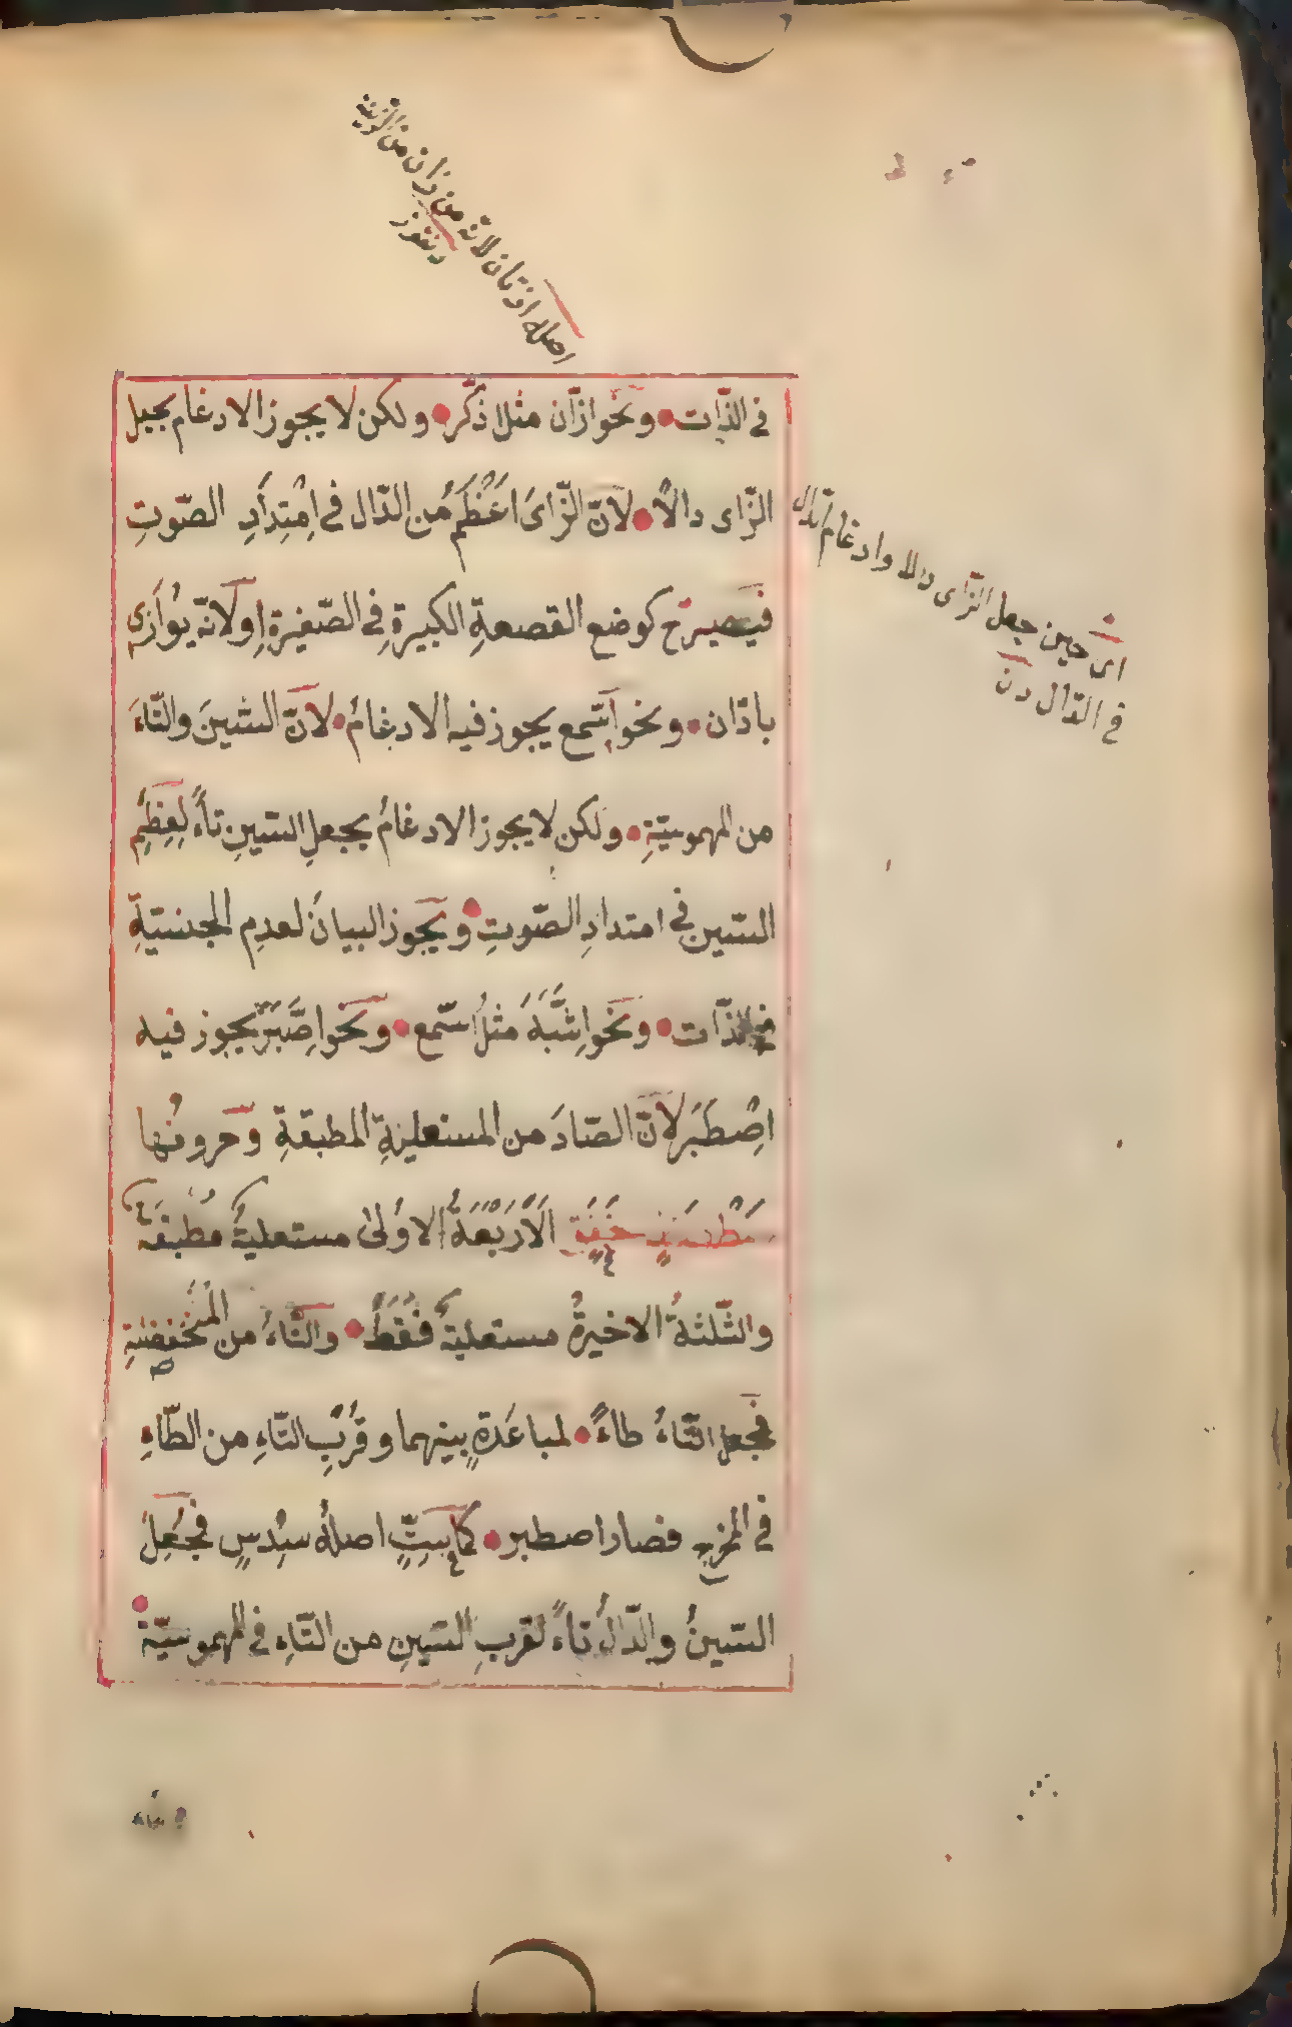 اصله ازتان لانه من زان من الزينة
في الذّات ونحو ازّان مثل اذّكّر ولكن لا يجوز الادغام بجعل
الزّاى دالًا لانّ الزّاىَ اَعْظَمُ من الدّال في اِمْتِدَادِ الصّوتِ
فيصير ح كوضع القصعةِ الكبيرةِ في الصّغيرةِ او لانّه يُوازى
بادّان ونحو اِسّمع يجوز فيه الادغامُ لانّ السّينَ والتّاءَ
من المهموسيّةِ ولكن لا يجوز الادغامُ بجعلِ السّينِ تاءً لعِظَمِ
السّين في امتدادِ الصّوتِ ويَجوز البيانُ لعدمِ الجنسيّةِ
في الذّات ونَحو اِشَّبَهَ مثلُ اسّمع ونَحو اِصَّبَرَ يجوز فيه
اِصْطَبَرَ لانّ الصّادَ من المستعليةِ المطبقةِ وحروفُها
خَغَقٍ اَلْاَرْبَعَةُ الاُولى مستعليةٌ مُطبقةٌ
والثّلثةُ الاخيرةُ مستعليةٌ فَقَطْ والتّاءُ من المُنْخَفِضةِ
فجعل التّاءُ طاءً لمباعَدةٍ بينهما وقُرْبِ التّاءِ من الطّاءِ
في المخرج فصار اصطبر كما في سِتٍّ اصلُه سِدْسٍ فجُعِلَ
السّينُ والدّالُ تاءً لقربِ السّينِ من التّاءِ في المهموسيّة
اى حين جعل الزّاى دالا وادغام الدّال
في الدّال